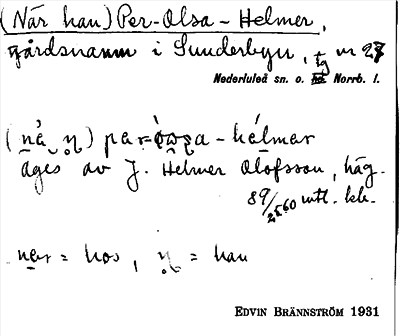 (När han) Per-Olsa-Helmer,
gårdsnamn i Sunderbyn, tg nr 27
Nederluleå sn. o. hd Norrb. l.
äges av J. Helmer Olofsson, häg.
89/2560 mtl. kb.
nęr = hos, = han
EDVIN BRÄNNSTRÖM 1931